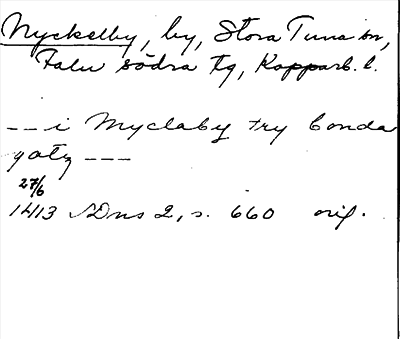 Nyckelby, by, Stora Tuna sn,
Falu södra tg, Kopparb. l.
--- i Myclaby try bonda
gotz ---
27/6
1413 SDns 2, s. 660 orig.